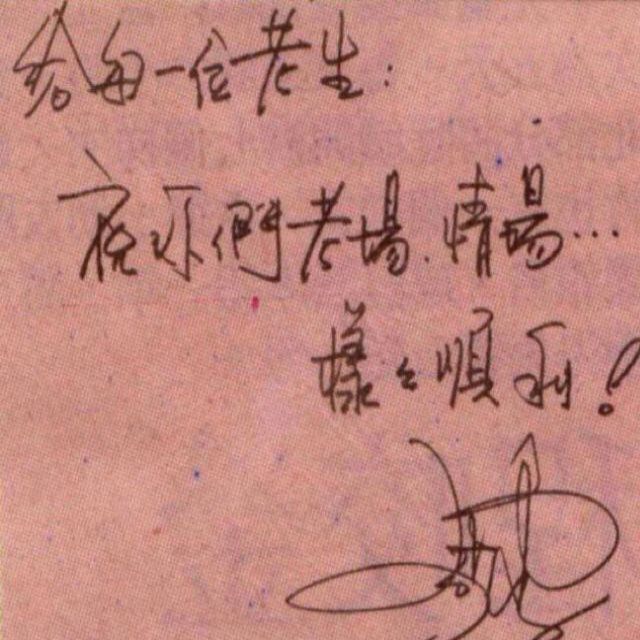 給每一位考生：
祝你們考場、情場…
樣樣順利！